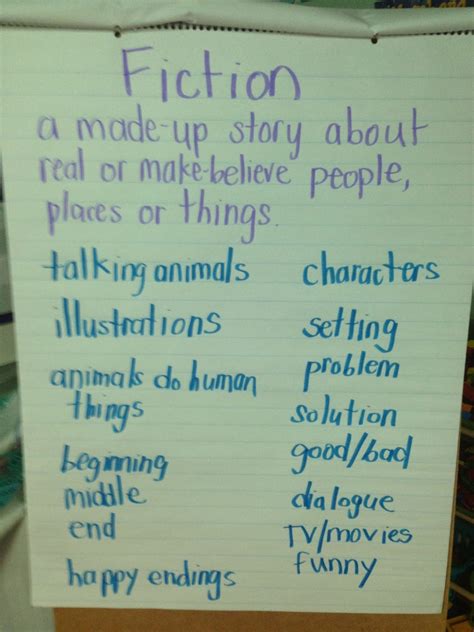 Fiction
a made-up story about
real or make-believe people,
places or things.
talking animals
illustrations
animals do human
things
beginning
middle
end
happy endings
characters
setting
problem
solution
good/bad
dialogue
TV/movies
funny